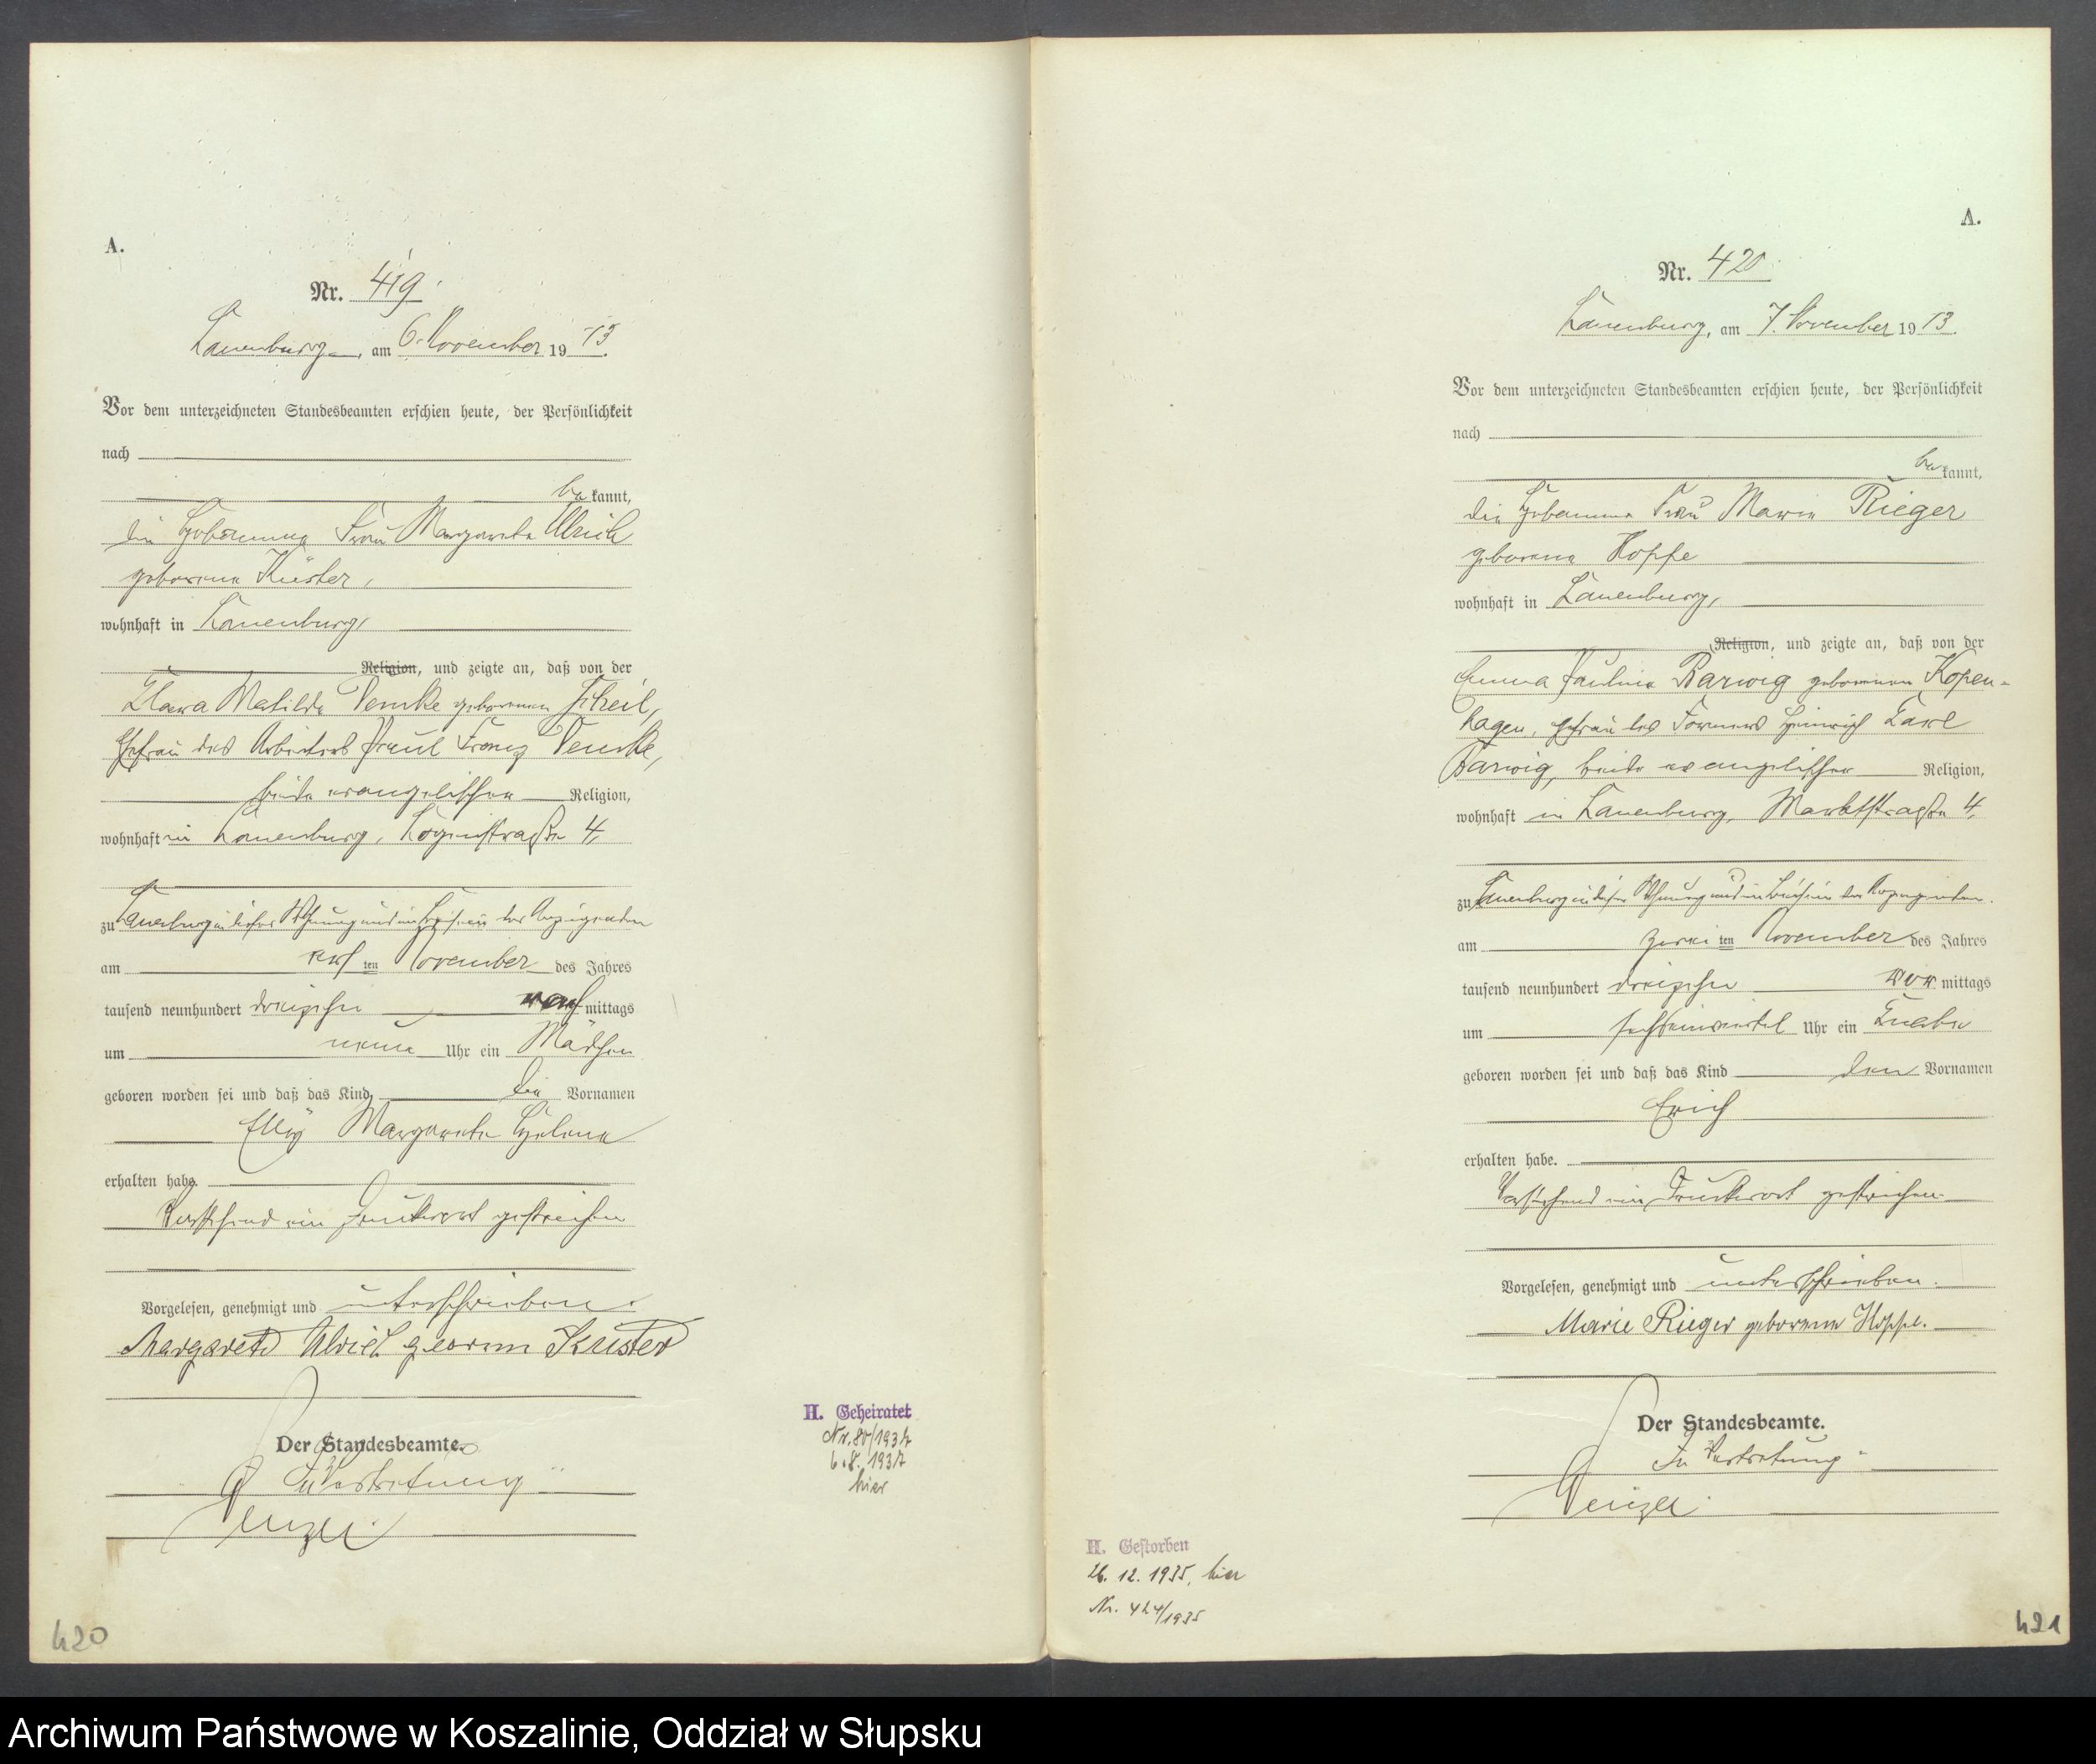 A.
Nr. 419.
Lauenburg, am 6. November 1913.
Vor dem unterzeichneten Standesbeamten erschien heute, der Persönlichkeit
nach
bekannt,
die Hebamme Frau Margarete Ulrich
geborene Küster,
wohnhaft in Lauenburg,
Religion, und zeigte an, daß von der
Klara Matilde Demske geborenen Scheil,
Ehefrau des Arbeiters Paul Franz Demske,
beide evangelischer Religion,
wohnhaft in Lauenburg, Logenstraße 4,
zu Lauenburg in dieser Wohnung und im Beisein der Anzeigenden
am ten November des Jahres
tausend neunhundert dreizehn nachmittags
um neun Uhr ein Mädchen
geboren worden sei und daß das Kind die Vornamen
Elly Margarete Helene
erhalten habe.
Vorstehend ein Druckwort gestrichen
Vorgelesen, genehmigt und unterschrieben.
Margarete Ulrich Küster
Der Standesbeamte.
In Vertretung
H. Geheiratet
Nr. 80/1937
6.8.1937
hier
420
A.
Nr. 420.
Lauenburg, am 7. November 1913.
Vor dem unterzeichneten Standesbeamten erschien heute, der Persönlichkeit
nach
bekannt,
die Hebamme Frau Marie Rieger
geborene Hoppe
wohnhaft in Lauenburg,
Religion, und zeigte an, daß von der
Emma Pauline Barwig geborenen Kopen-
hagen, Ehefrau des Formers Heinrich Karl
Barwig, beide evangelischer Religion,
wohnhaft in Lauenburg, Marktstraße 4,
zu Lauenburg in dieser Wohnung und im Beisein der Anzeigenden
am zweiten November des Jahres
tausend neunhundert dreizehn vormittags
um sechseinviertel Uhr ein Knabe
geboren worden sei und daß das Kind den Vornamen
Erich
erhalten habe.
Vorstehend ein Druckwort gestrichen.
Vorgelesen, genehmigt und unterschrieben.
Marie Rieger geborene Hoppe.
Der Standesbeamte.
In Vertretung
H. Gestorben
26. 12. 1935, hier
Nr. 424/1935
421
Archiwum Państwowe w Koszalinie, Oddział w Słupsku